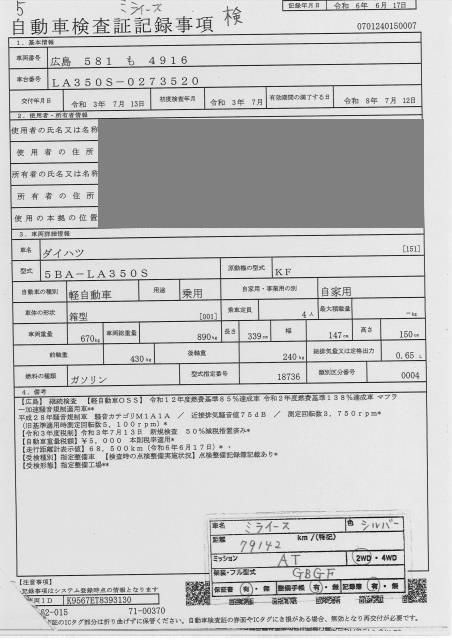 5
ミライース 検
記録年月日 令和 6年 6月17日
自動車検査証記録事項
0701240150007
1．基本情報
車両番号 広島 581 も 4916
車台番号 LA350S-0273520
交付年月日 令和 3年 7月 13日 初度検査年月 令和 3年 7月 有効期間の満了する日 令和 8年 7月 12日
2．使用者・所有者情報
使用者の氏名又は名称
使用者の住所
所有者の氏名又は名称
所有者の住所
使用の本拠の位置
3．車両詳細情報
車名 ダイハツ [151]
型式 5BA-LA350S 原動機の型式 KF
自動車の種別 軽自動車 用途 乗用 自家用・事業用の別 自家用
車体の形状 箱型 [001] 乗車定員 4人 最大積載量 -kg
車両重量 670kg 車両総重量 890kg 長さ 339cm 幅 147cm 高さ 150cm
前軸重 430kg 後軸重 240kg 総排気量又は定格出力 0.65 L
燃料の種類 ガソリン 型式指定番号 18736 類別区分番号 0004
4．備考
【広島】 継続検査 【軽自動車OSS】 令和12年度燃費基準85％達成車 令和2年度燃費基準138％達成車 マフラ
ー加速騒音規制適用車**
平成28年騒音規制車 騒音カテゴリM1A1A ／ 近接排気騒音値75dB ／ 測定回転数3，750rpm**
(旧基準適用時測定回転数5，100rpm)*
【令和3年度税制】令和3年7月13日 新規検査 50％減税措置済み*
【自動車重量税額】¥5，000 本則税率適用*
【走行距離計表示値】68，500km(令和6年6月17日)*
【受検種別】指定整備車 【検査時の点検整備実施状況】点検整備記録簿記載あり*
【受検形態】指定整備工場**
車名 ミライース 色 シルバー
距離 79142 km／(特記)
ミッション AT 2WD・4WD
架装・フル型式 GBGF
保証書 有・無 整備手帳 有・無 記録簿 有・無
【注意事項】
記録事項はシステム登録時点の情報となります
車両ID K9567ET8393130
62-015 71-00370
証のICタグ部分は折り曲げずに保管ください。自動車検査証の券面やICタグにき損がある場合、無効となり再交付が必要です。